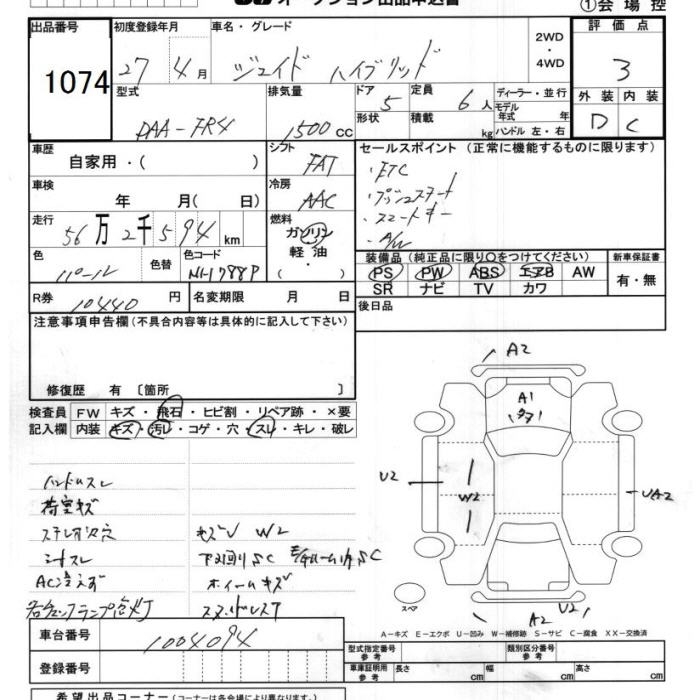 オークション出品申込書
①会場控
出品番号 1074
初度登録年月 27年4月
車名・グレード ジェイド ハイブリッド
2WD・4WD
評価点 3
外装 D 内装 C
型式 DAA-FR4
排気量 1500cc
ドア 5
形状
定員 6人
積載 kg
ディーラー・並行
モデル年式 年
ハンドル 左・右
車歴 自家用・( )
シフト FAT
車検 年 月( 日)
冷房 AAC
走行 56万2千594km
燃料 ガソリン・軽油・( )
色 パール
色替
色コード NH788P
R券 10440円
名変期限 月 日
セールスポイント (正常に機能するものに限ります)
・ETC
・プッシュスタート
・スマートキー
・A/W
装備品 (純正品に限り○をつけてください)
PS PW ABS エアB AW
SR ナビ TV カワ
新車保証書 有・無
後日品
注意事項申告欄 (不具合内容等は具体的に記入して下さい)
修復歴 有 〔箇所 〕
検査員記入欄
FW キズ・飛石・ヒビ割・リペア跡・×要
内装 キズ・汚レ・コゲ・穴・スレ・キレ・破レ
ハンドルスレ
荷室キズ
シートスレ
キズV W2
AC冷えず
ホイールキズ
スタッドレスT
A2
A1
U2
W2
UA2
スペア
A2
U2
A-キズ E-エクボ U-凹み W-補修跡 S-サビ C-腐食 XX-交換済
車台番号 1004094
登録番号
型式指定番号 参考
類別区分番号 参考
車庫証明用 参考 長さ cm 幅 cm 高さ cm
希望出品コーナー (コーナーは各会場により異なります。)